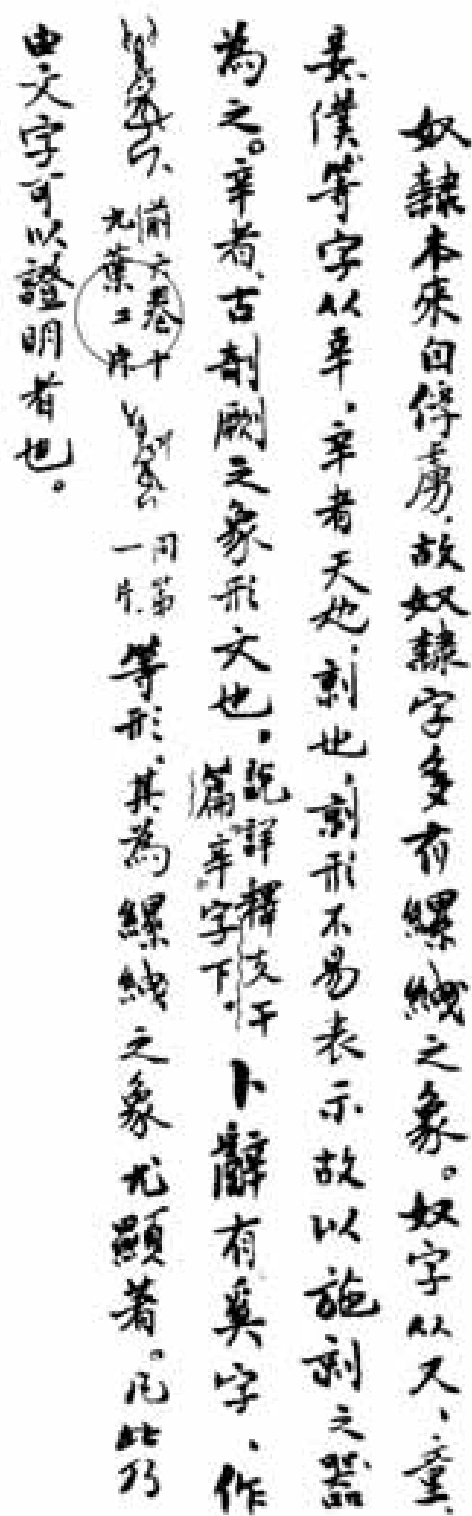 奴隸本來自俘虜，故奴隸字多有縲絏之象。奴字从又、童、
妾、僕等字从辛，辛者天也，剠也，剠形不易表示故以施剠之器
為之。辛者，古剞劂之象形文也，說詳釋支干篇辛字下。卜辭有奚字，作
前六卷十九葉二片 同第一片 等形，其為縲絏之象尤顯著。凡此乃
由文字可以證明者也。